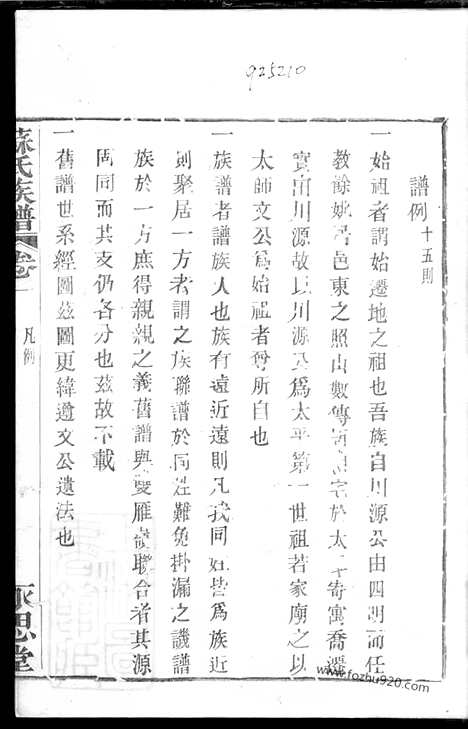 925210
譜例十五則
一始祖者謂始遷地之祖也吾族自川源公由四明而任
教餘姚 邑東之照山數傳 宅於太平寄寓喬遷
實由川源故以川源公爲太平第一世祖若家廟之以
太師文公爲始祖者尊所自也
一族譜者譜族人也族有遠近遠則凡我同姓皆爲族近
則聚居一方者謂之族聯譜於同姓難免掛漏之譏譜
族於一方庶得親親之義舊譜與雙雁 聯合者其源
固同而其支仍各分也茲故不載
一舊譜世系經圖茲圖更緯遵文公遺法也
蘇氏族譜
凡例
永思堂
www.fozhu920.com